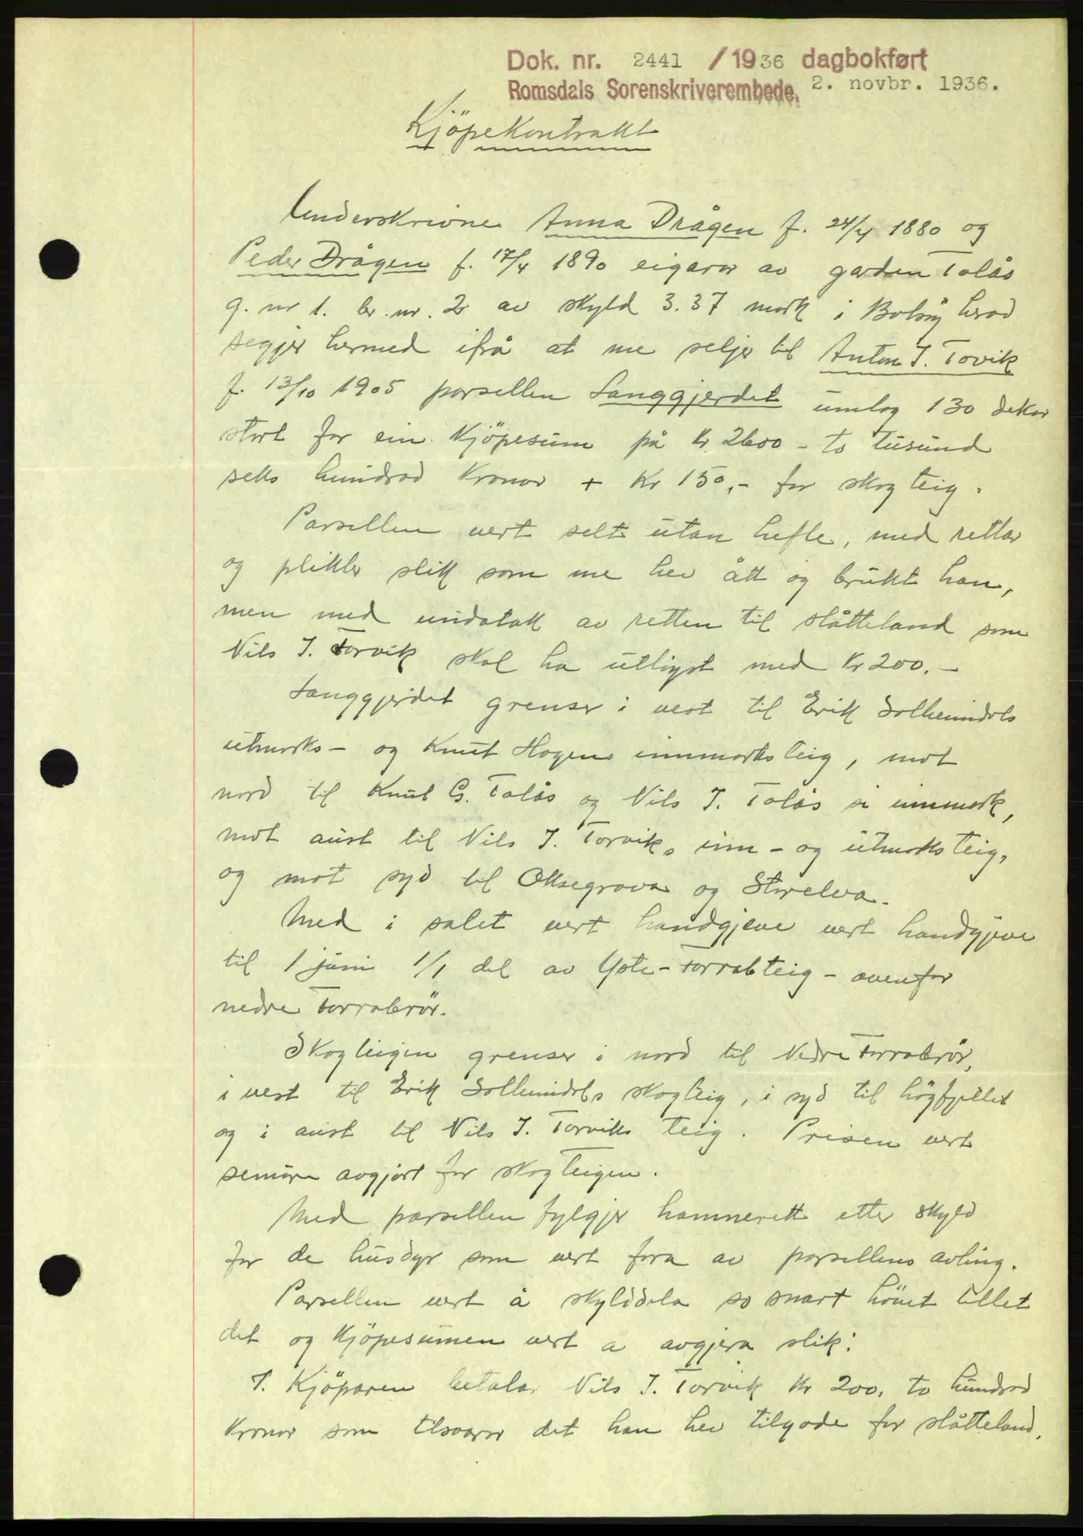 Dok. nr. 2441 /1936 dagbokført
Romsdals Sorenskriverembede, 2. novbr. 1936.
Kjöpekontrakt
Underskrivne Anna Drågen f. 24/4 1880 og
Peder Drågen f. 17/4 1890 eigarar av garden Tolås
g. nr 1. br. nr. 2 av skyld 3.37 mork i Bolsöy herad
segjer hermed ifrå at me seljer til Anton J. Torvik
f. 13/10 1905 parsellen Langgjerdet umlag 130 dekar
stort for ein kjöpesum på kr 2600 - to tusund
seks hundrad kronor + Kr 150,- for skog teig.
Parsellen vert selt utan hefte, med rettar
og plikter slik som me hev ått og brukt han,
men med undatak av retten til slåtteland som
Nils J. Torvik skal ha utligst med Kr 200.-
Langgjerdet grenser i vest til Erik Solheimdals
utmarks- og Knut Hagens innmarks teig, mot
nord til Knut G. Tolås og Nils J. Tolås si innmark,
mot aust til Nils J. Torviks inn- og utmarks teig,
og mot syd til Oksegrova og Storelva.
Med i salet vert handgjeve vert handgjeve
til 1 juni 1/1 del av Yste-Forrabteig - ovenfor
nedre Forrabrör.
Skogteigen grenser i nord til Nedre Forrabrör,
i vest til Erik Solheimdals skogteig, i syd til högfjellet
og i aust til Nils J. Torviks teig. Prisen vert
seinare avgjort for skogteigen.
Med parsellen fylgjer hamnerett etter skyld
for de husdyr som vert fora av parsellens avling.
Parsellen vert å skylddela so snart höuet tillet
det og kjöpesumen vert a avgjera slik:
1. Kjöparen betalar Nils J. Torvik Kr 200, to hundrad
kronor som tilsvarar det han hev tilgode for slåtteland.